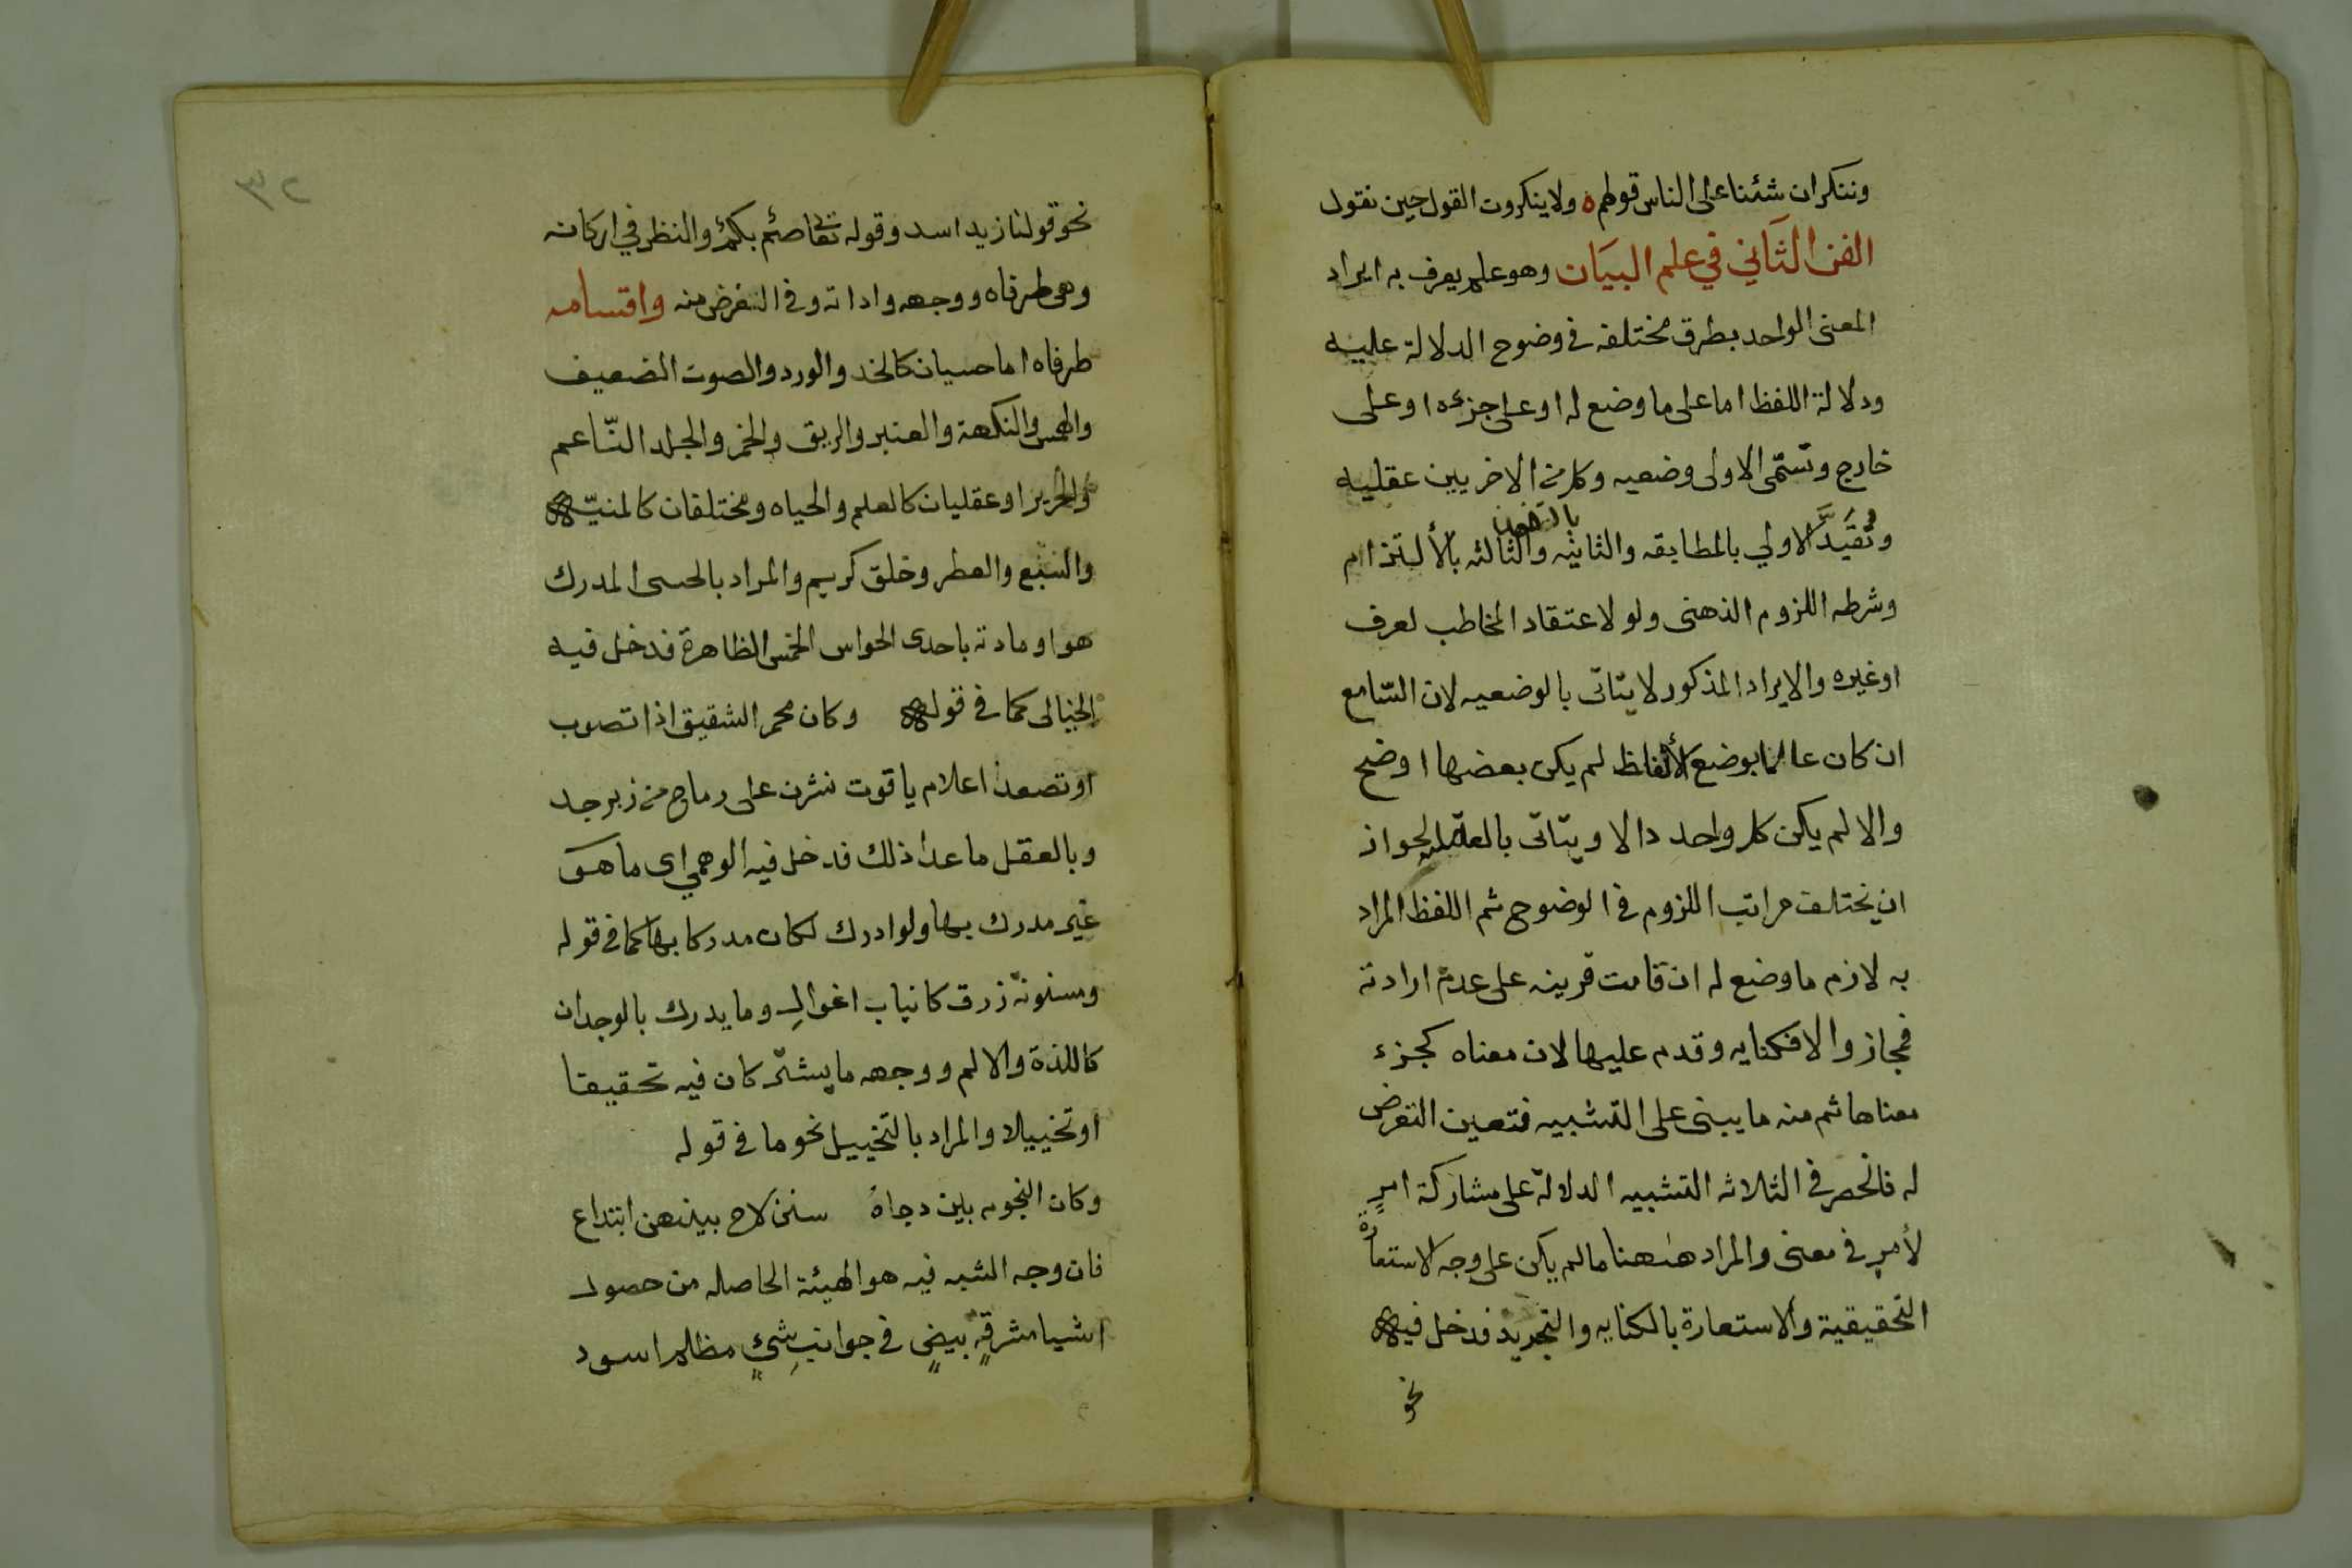 وننكران شئنا على الناس قولهم ه ولا ينكروت القول حين نقول
الفن الثاني في علم البيان وهو علم يعرف به ايراد
المعنى الواحد بطرق مختلفه في وضوح الدلالة عليه
ودلالة اللفظ اما على ما وضع له او على جزءه او على
خارج وتسمى الاولى وضعيه وكل من الاخريين عقليه
وتقيد الاولي بالمطابقه والثانيه بالتضمن والثالثه بالألتزام
وشرطه اللزوم الذهنى ولو لاعتقاد المخاطب لعرف
او غيره والايراد المذكور لا يتاتى بالوضعيه لان السامع
ان كان عالما بوضع الألفاظ لم يكن بعضها اوضح
والا لم يكن كل واحد دالا ويتاتى بالعقليه لجواز
ان يختلف مراتب اللزوم في الوضوح ثم اللفظ المراد
به لازم ما وضع له ان قامت قرينه على عدم ارادته
فمجاز والا فكنايه وقدم عليها لان معناه كجزء
معناها ثم منه ما يبنى على التشبيه فتعين التعرض
له فانحصر في الثلاثه التشبيه الدلالة على مشاركة امرٍ
لأمرٍ في معنى والمراد ههنا ما لم يكن على وجه الاستعارة
التحقيقية والاستعارة بالكنايه والتجريد فدخل فيه
نحو
٣٢
نحو قولنا زيد اسد وقوله تعا صمٌ بكمٌ والنظر في اركانه
وهى طرفاه ووجهه واداته وفي الغرض منه واقسامه
طرفاه اما حسيان كالخد والورد والصوت الضعيف
والهمس والنكهة والعنبر والريق والخمر والجلد الناعم
والحرير او عقليان كالعلم والحياه ومختلفان كالمنيّه
والسبع والعطر وخلق كريم والمراد بالحسى المدرك
هو او مادته باحدى الحواس الخمس الظاهرة فدخل فيه
الخيالى كما في قوله وكان محمر الشقيق اذا تصوب
او تصعد اعلام ياقوت نشرن على رماح من زبرجد
وبالعقل ما عدا ذلك فدخل فيه الوهمي اى ما هو
غير مدرك بها ولو ادرك لكان مدركا بها كما في قوله
ومسنونة زرق كانياب اغوال وما يدرك بالوجدان
كاللذة والالم ووجهه ما يشتركان فيه تحقيقا
او تخييلا والمراد بالتخييل نحو ما في قوله
وكان النجوم بين دجاهُ سنن لاح بينهن ابتداع
فان وجه الشبه فيه هو الهيئة الحاصله من حصول
اشيا مشرقةٍ بيضٍ في جوانبِ شيءٍ مظلم اسود